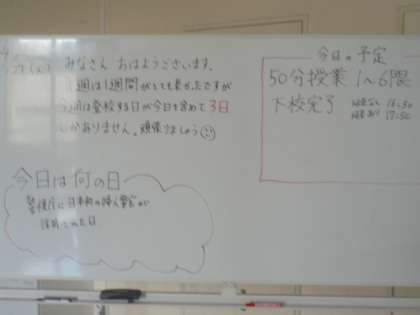 みなさん おはようございます。
週は1週間がとても長かったですが
週は登校する日が今日を含めて3日
しかありません。頑張りましょう
今日の予定
50分授業 1〜6限
下校完了
17:50
今日は何の日
警視庁に日本初の婦人警官が
採用された日